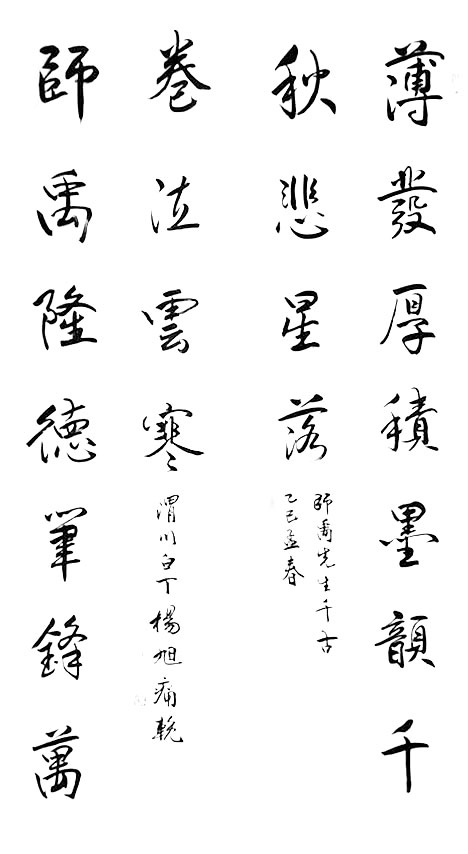 薄發厚積墨韻千
秋悲星落
師禹先生千古
乙巳孟春
師禹隆德筆鋒萬
卷泣雲寒
渭川白丁楊旭痛輓